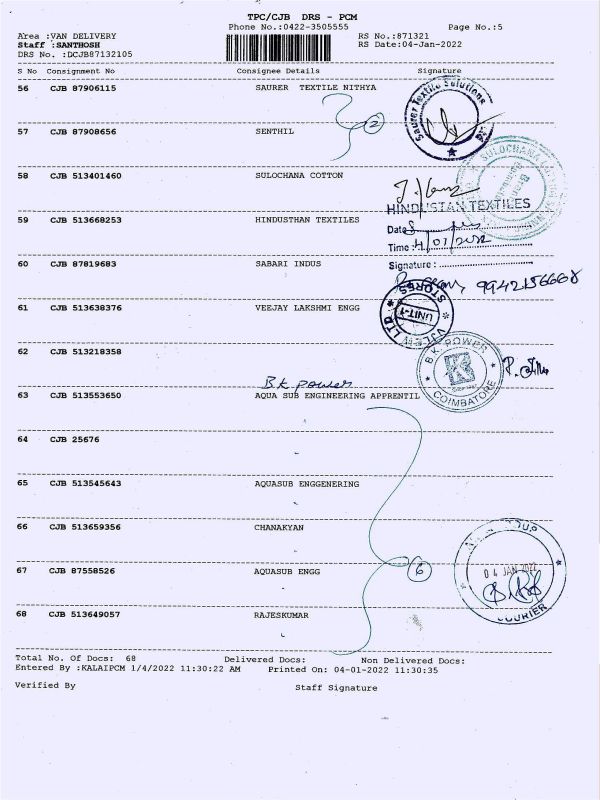 TPC/CJB DRS - PCM
Phone No.:0422-3505555 Page No.:5
Area :VAN DELIVERY RS No.:871321
Staff :SANTHOSH RS Date:04-Jan-2022
DRS No. :DCJB87132105
S No Consignment No Consignee Details Signature
56 CJB 87906115 SAURER TEXTILE NITHYA
Saurer Textile Solutions
2
57 CJB 87908656 SENTHIL
58 CJB 513401460 SULOCHANA COTTON
SULOCHANA
HINDUSTAN TEXTILES
59 CJB 513668253 HINDUSTHAN TEXTILES
Date
Time : 4/01/2022
60 CJB 87819683 SABARI INDUS
Signature :
9942156668
STORES
UNIT-1
61 CJB 513638376 VEEJAY LAKSHMI ENGG
62 CJB 513218358
B.K. POWER
COIMBATORE
B.K power
63 CJB 513553650 AQUA SUB ENGINEERING APPRENTIL
64 CJB 25676
65 CJB 513545643 AQUASUB ENGGENERING
66 CJB 513659356 CHANAKYAN
67 CJB 87558526 AQUASUB ENGG
6
04 JAN 2022
COURIER
68 CJB 513649057 RAJESKUMAR
Total No. Of Docs: 68 Delivered Docs: Non Delivered Docs:
Entered By :KALAIPCM 1/4/2022 11:30:22 AM Printed On: 04-01-2022 11:30:35
Verified By Staff Signature